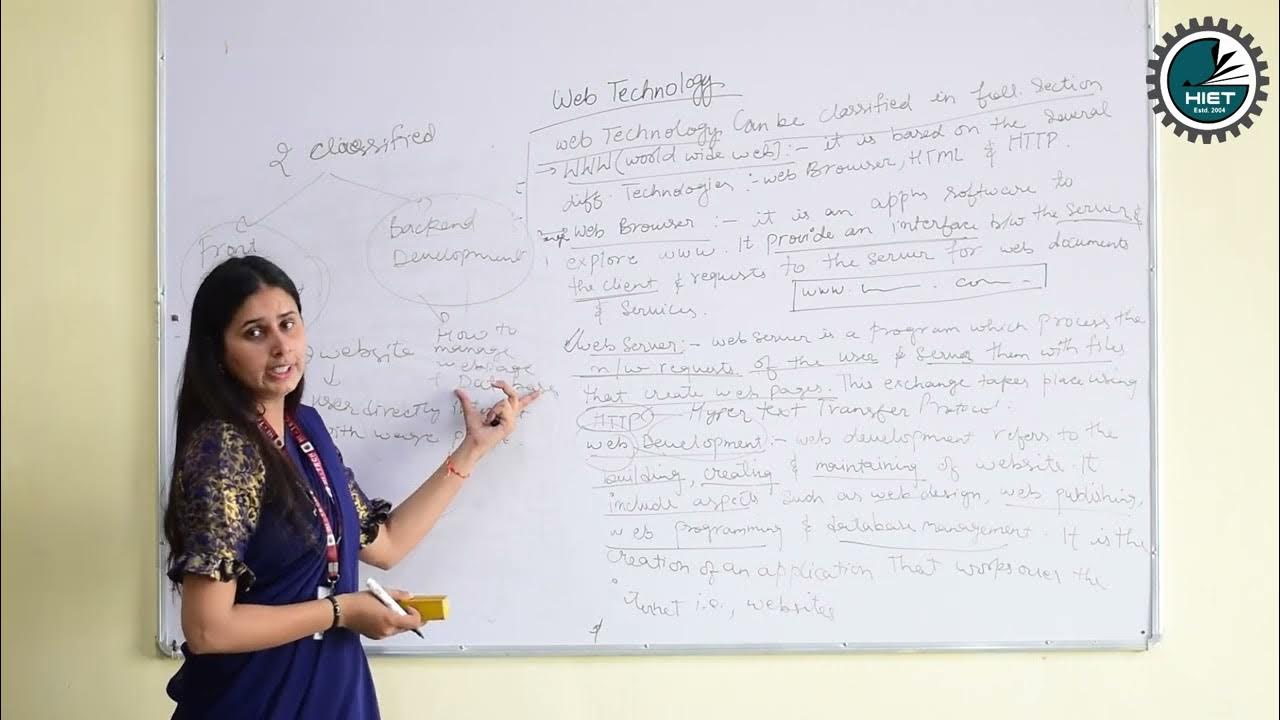 Web Technology
web Technology Can be classified in foll. Section
→ WWW (world wide web) :- it is based on the several
diff. Technologies :- web Browser, HTML & HTTP.
Web Browser :- it is an appln software to
explore www. It provide an interface b/w the server &
the client & requests to the server for web documents
& Services.
www. . com
Web Server :- web server is a program which process the
n/w requests of the user & serves them with files
that create web pages. This exchange takes place using
HTTP Hyper Text Transfer Protocol.
web Development :- web development refers to the
building, creating & maintaining of website. It
include aspects such as web design, web publishing,
web programming & database management. It is the
creation of an application that works over the
i.e., websites
2 classified
Front
Backend
Development
website
↓
user directly
with
How to
manage
HIET
Estd. 2004